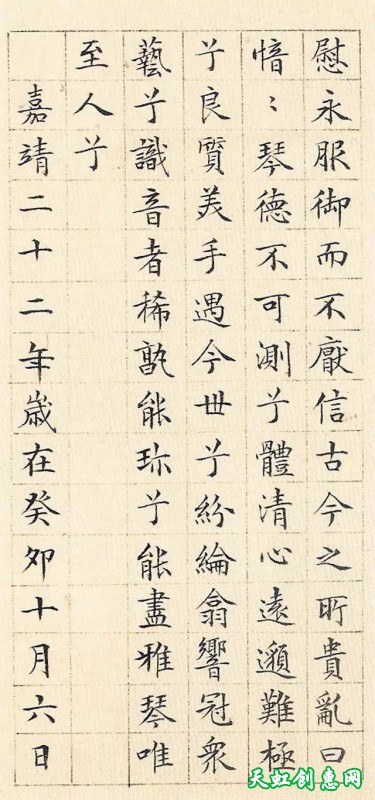 慰永服御而不厭信古今之所貴亂曰
愔〻琴德不可測兮體清心遠邈難極
兮良質美手遇今世兮紛綸翕響冠衆
藝兮識音者稀孰能珎兮能盡雅琴唯
至人兮
嘉靖二十二年歲在癸卯十月六日
天虹创惠网